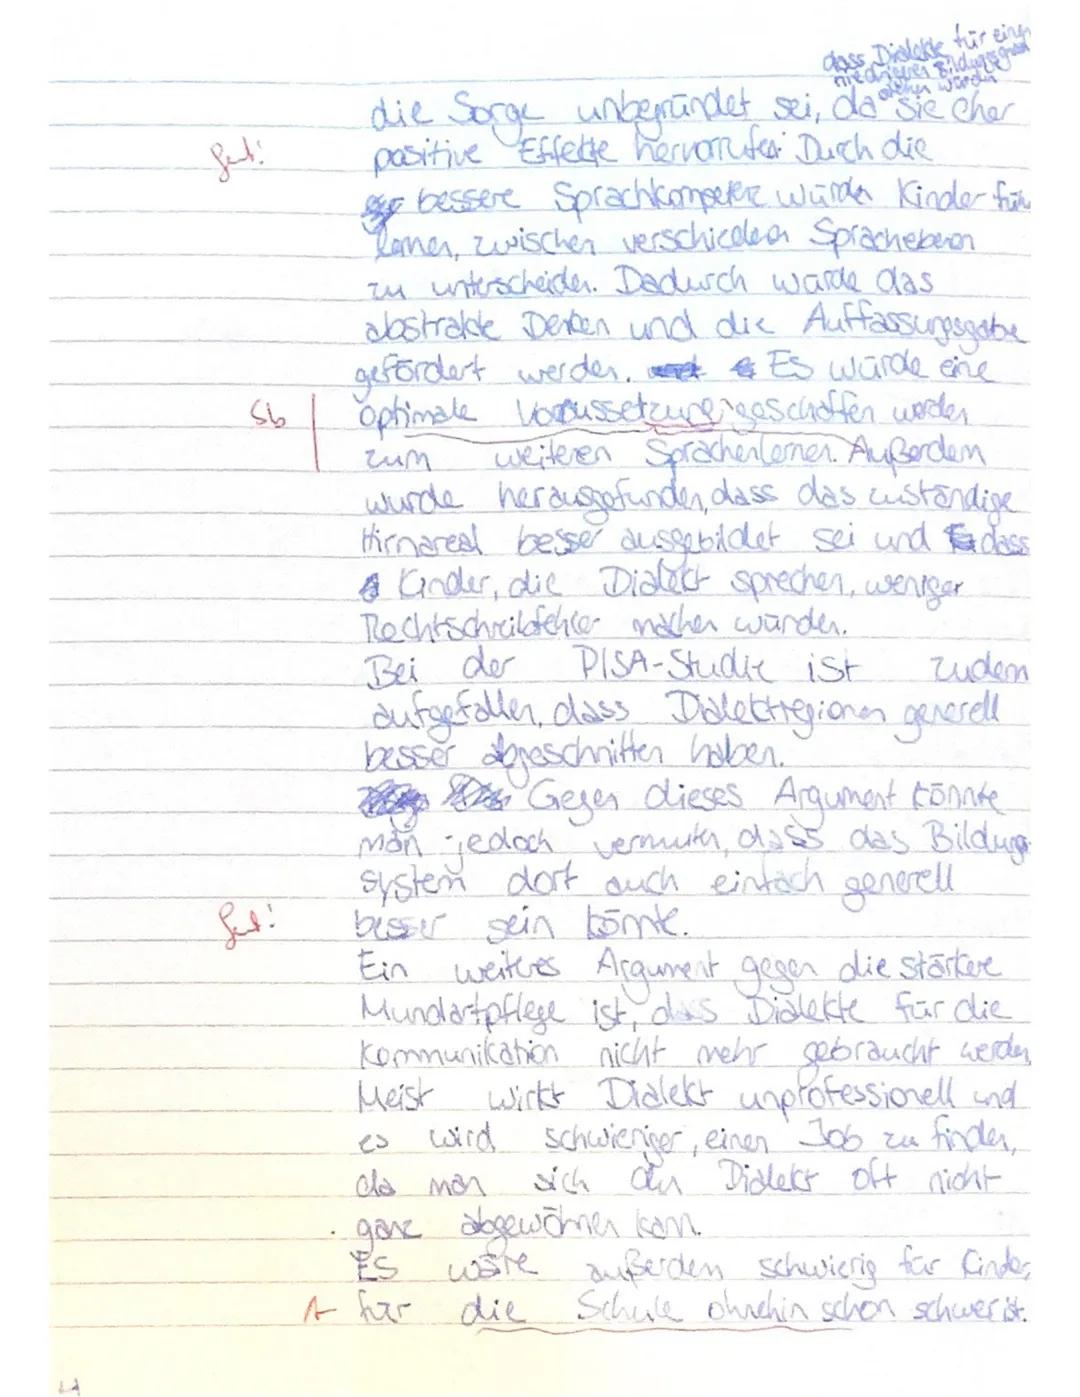 dass Dialekte für einen
niedrigeren Bildungsgrad
stehen würden
die Sorge unbegründet sei, da sie eher
gut!
positive Effekte hervorrufen. Durch die
bessere Sprachkompetenz würden Kinder früh
lernen, zwischen verschiedenen Sprachebenen
zu unterscheiden. Dadurch würde das
abstrakte Denken und die Auffassungsgabe
gefördert werden. Es würde eine
Sb
optimale Voraussetzung geschaffen werden
zum weiteren Sprachenlernen. Außerdem
wurde herausgefunden, dass das zuständige
Hirnareal besser ausgebildet sei und dass
Kinder, die Dialekt sprechen, weniger
Rechtschreibfehler machen würden.
Bei der PISA-Studie ist zudem
aufgefallen, dass Dialektregionen generell
besser abgeschnitten haben.
Gegen dieses Argument könnte
man jedoch vermuten, dass das Bildungs-
system dort auch einfach generell
gut!
besser sein könnte.
Ein weiteres Argument gegen die stärkere
Mundartpflege ist, dass Dialekte für die
Kommunikation nicht mehr gebraucht werden.
Meist wirkt Dialekt unprofessionell und
es wird schwieriger, einen Job zu finden,
da man sich den Dialekt oft nicht
ganz abgewöhnen kann.
Es wäre außerdem schwierig für Kinder,
A
für die Schule ohnehin schon schwer ist.
4